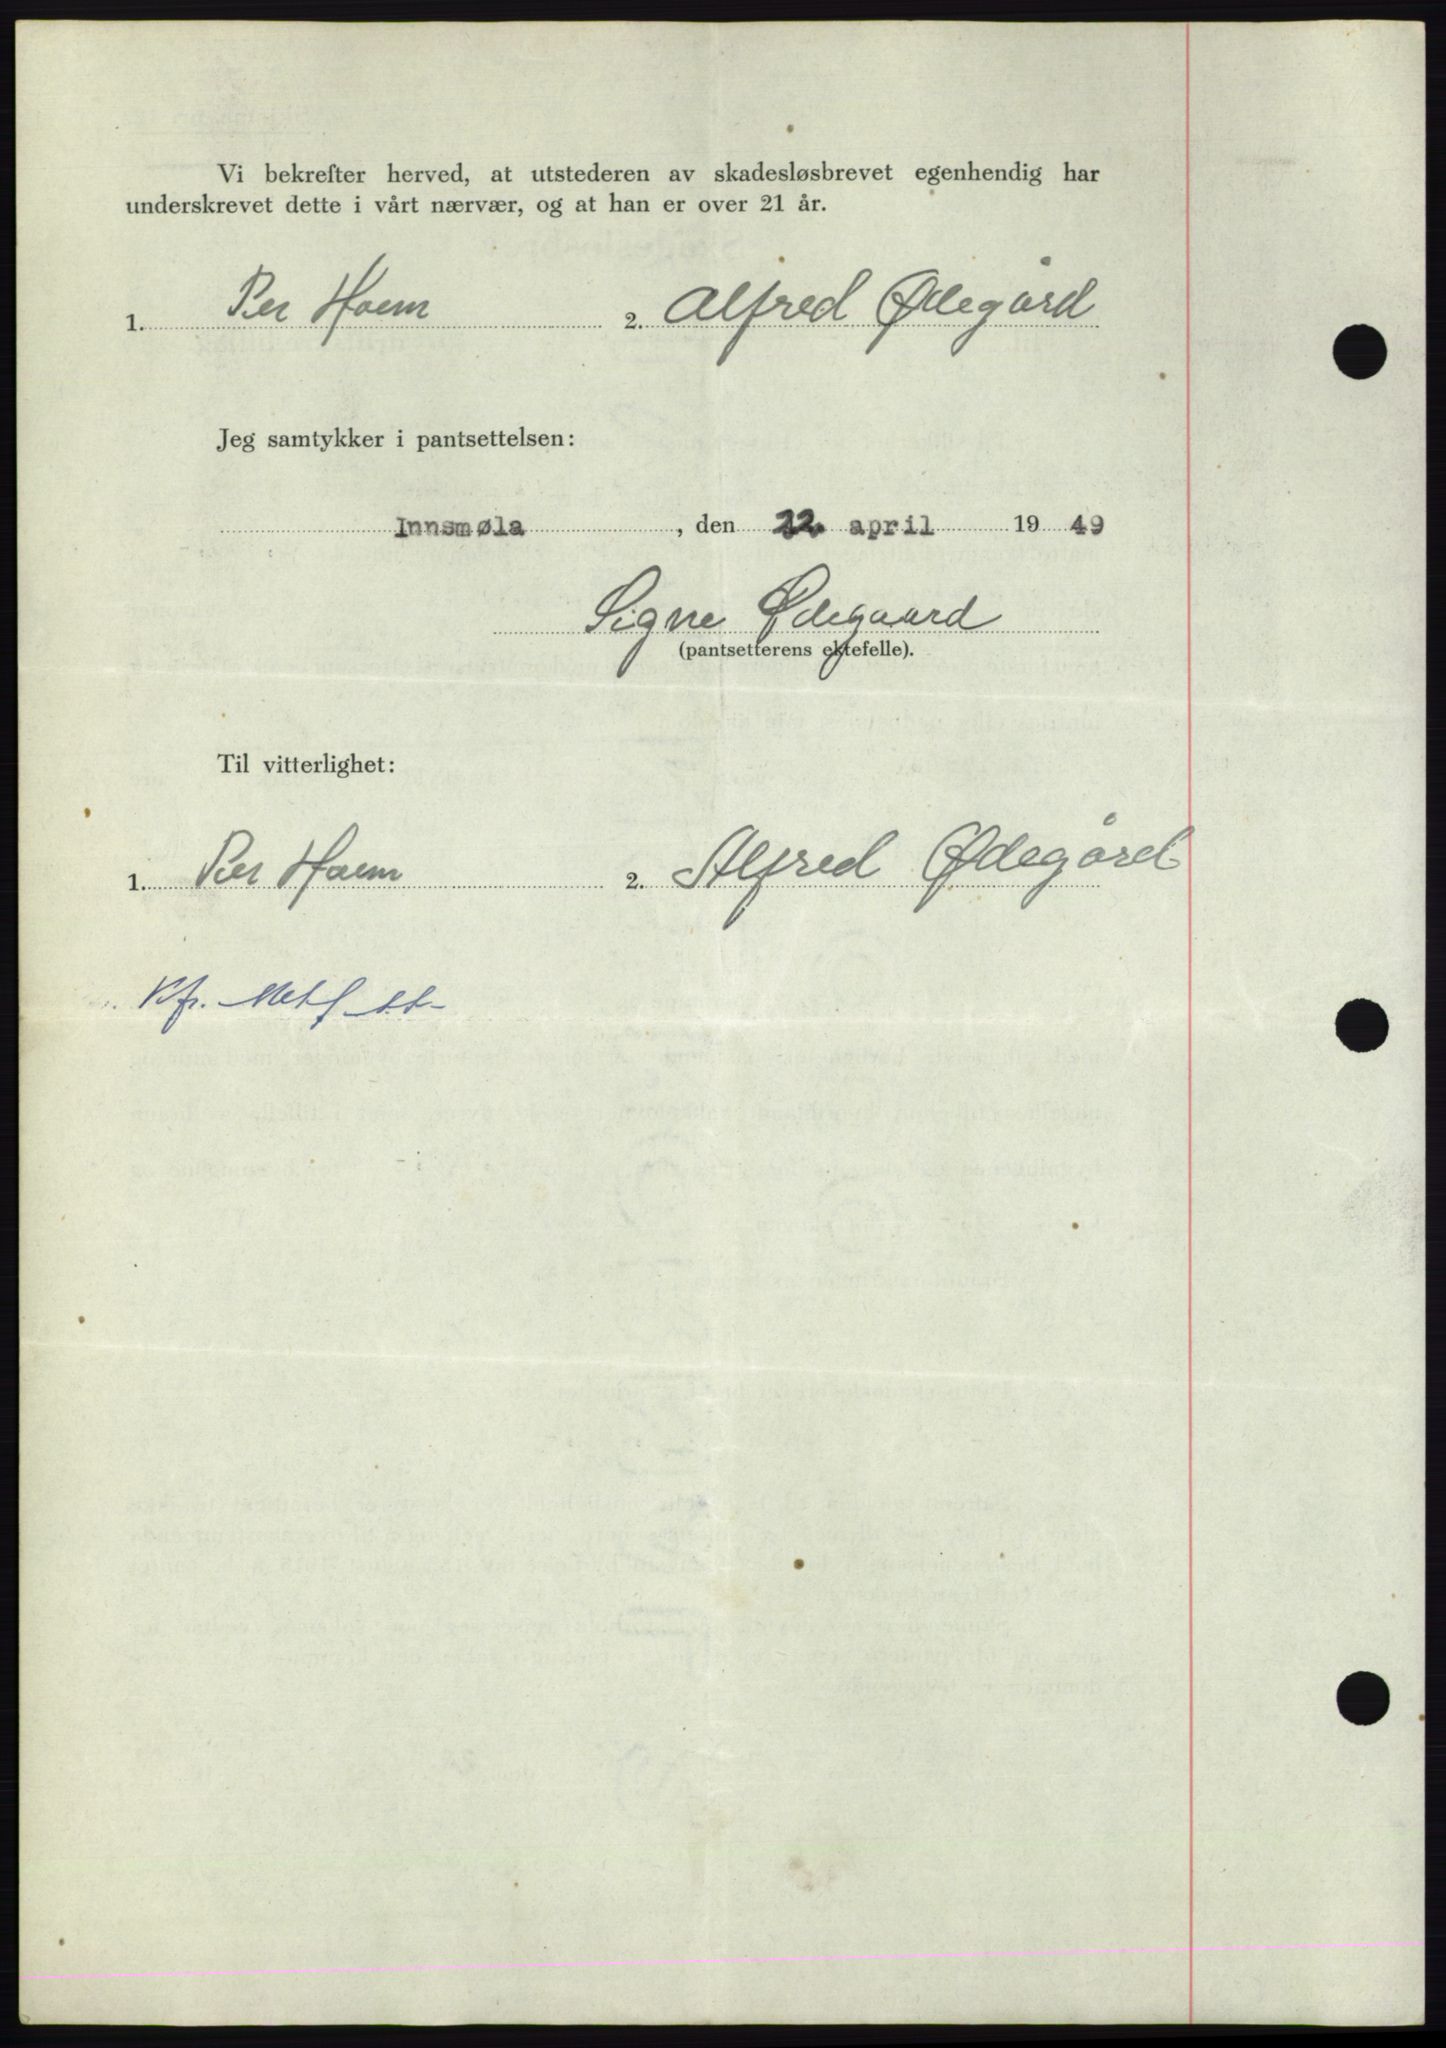 Vi bekrefter herved, at utstederen av skadesløsbrevet egenhendig har
underskrevet dette i vårt nærvær, og at han er over 21 år.
1. Per Hoem 2. Alfred Ødegård
Jeg samtykker i pantsettelsen:
Innsmøla, den 22. april 1949
Signe Ødegaard
(pantsetterens ektefelle).
Til vitterlighet:
1. Per Hoem 2. Alfred Ødegård
Kfr.